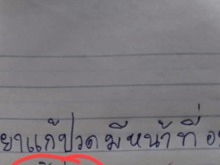 ยาแก้ปวดมีหน้าที่